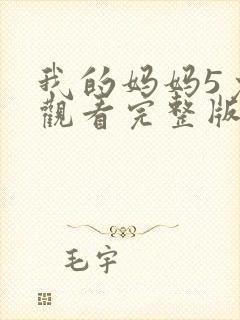 我的妈妈5
觀看完整版
毛宇